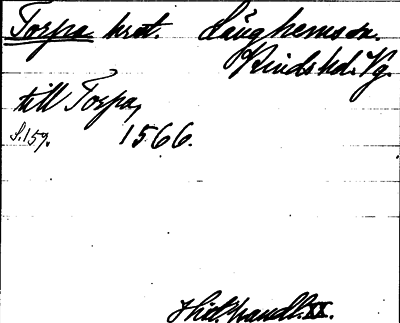 Torpa hrat. Länghems sn.
Kinds hd. Vg.
till Torpa,
S.159. 1566.
Hist. handl. XX.